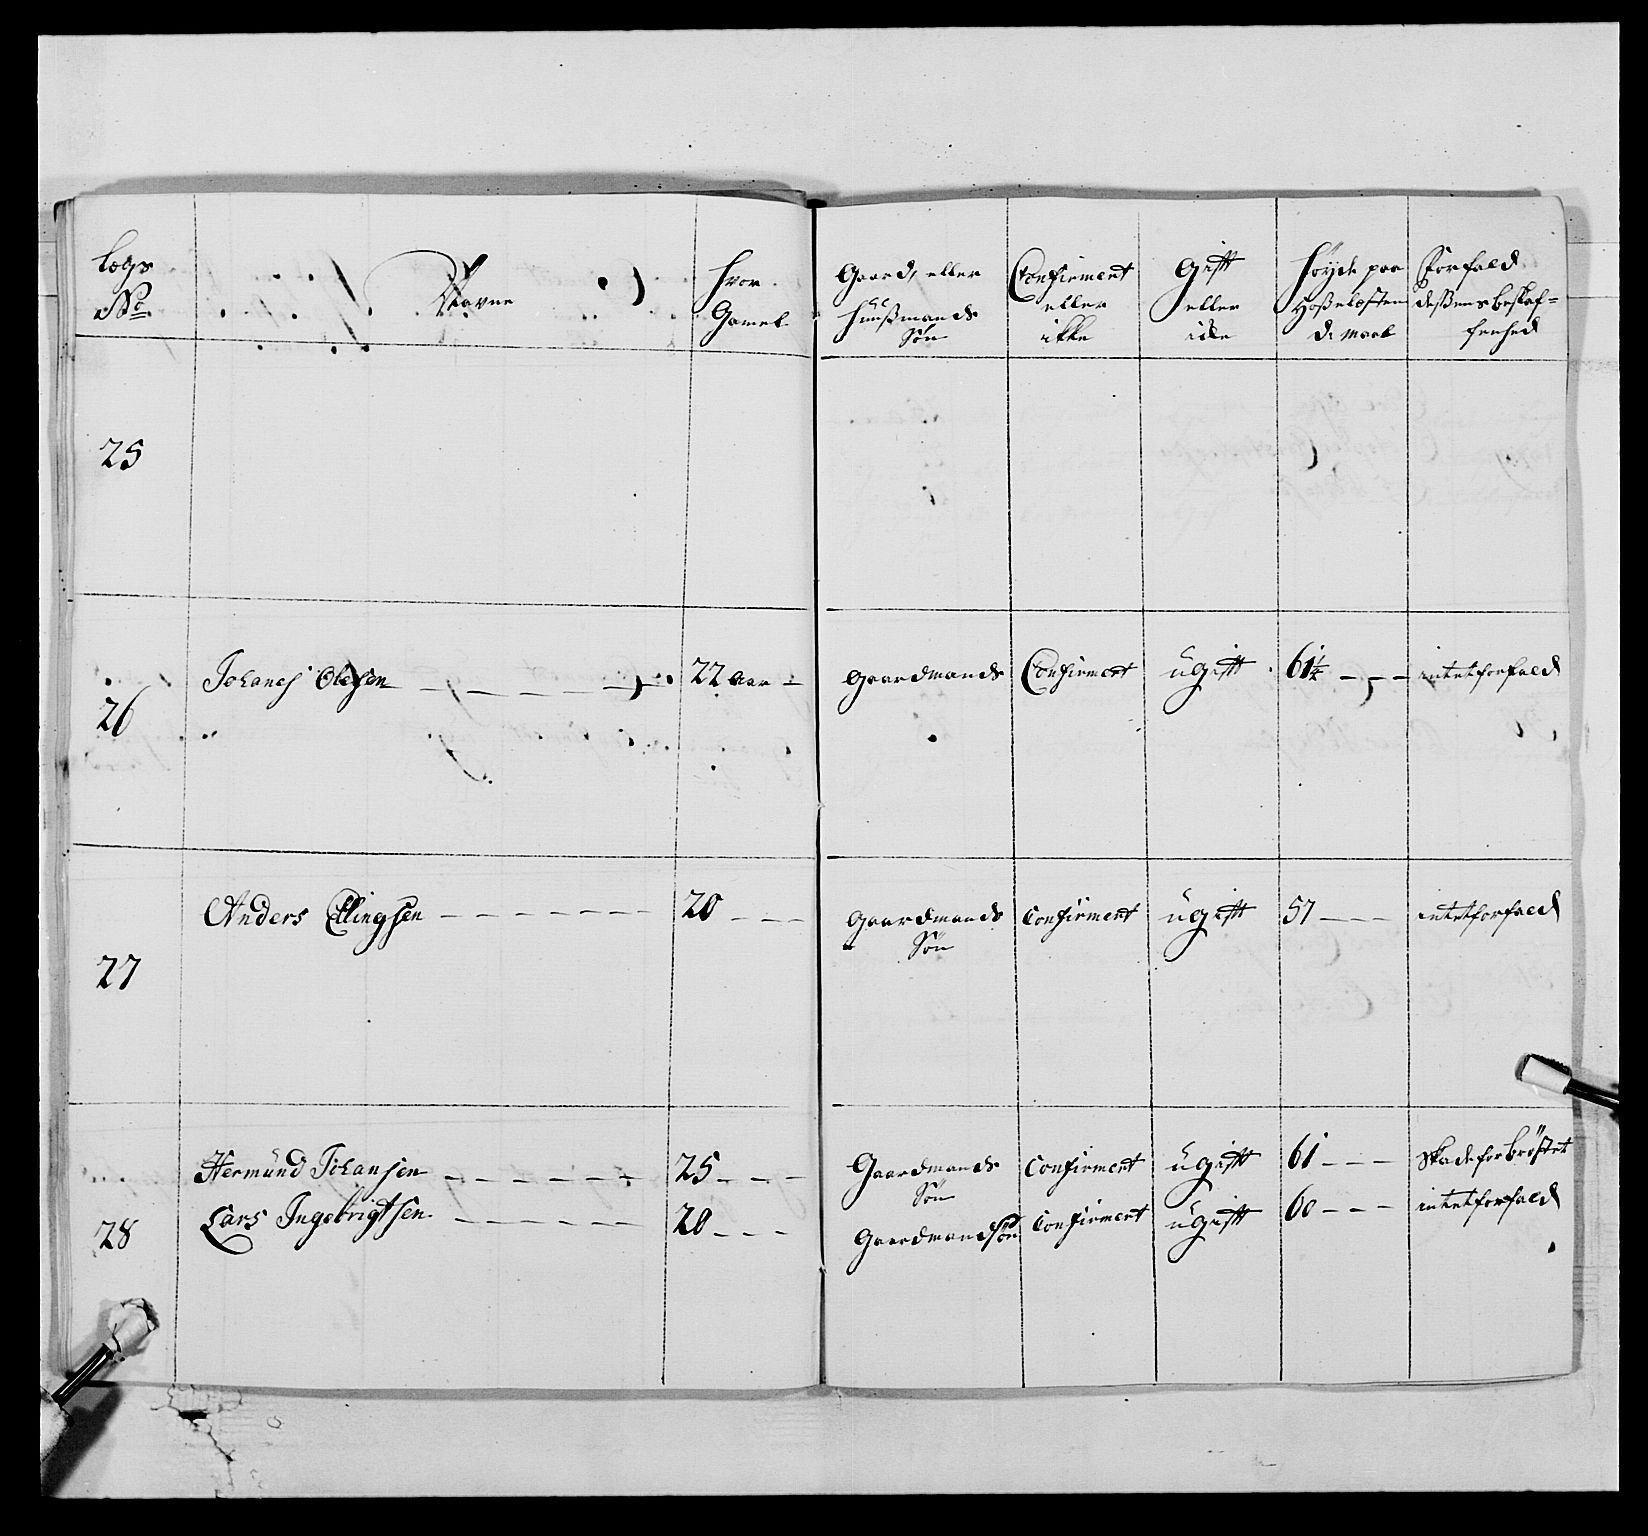 Legs No. Navne hvor Gamel Gaard, eller Huusmands Søn Confirmert eller ikke Gift eller ikke Høyde paa Hoseløsten de maal Forfald dessens beskaffenhed
25
26 Johanes Olesen 22 aar Gaardmands Confirmert ugift 61½ intet forfald
27 Anders Ellingsen 20 Gaardmands Søn Confirmert ugift 57 intet forfald
28 Hermund Johansen 25 Gaardmands Søn Confirmert ugift 61 skade for brøstet
Lars Ingebrigtsen 20 Gaardmandsøn Confirmert ugift 60 intet forfald